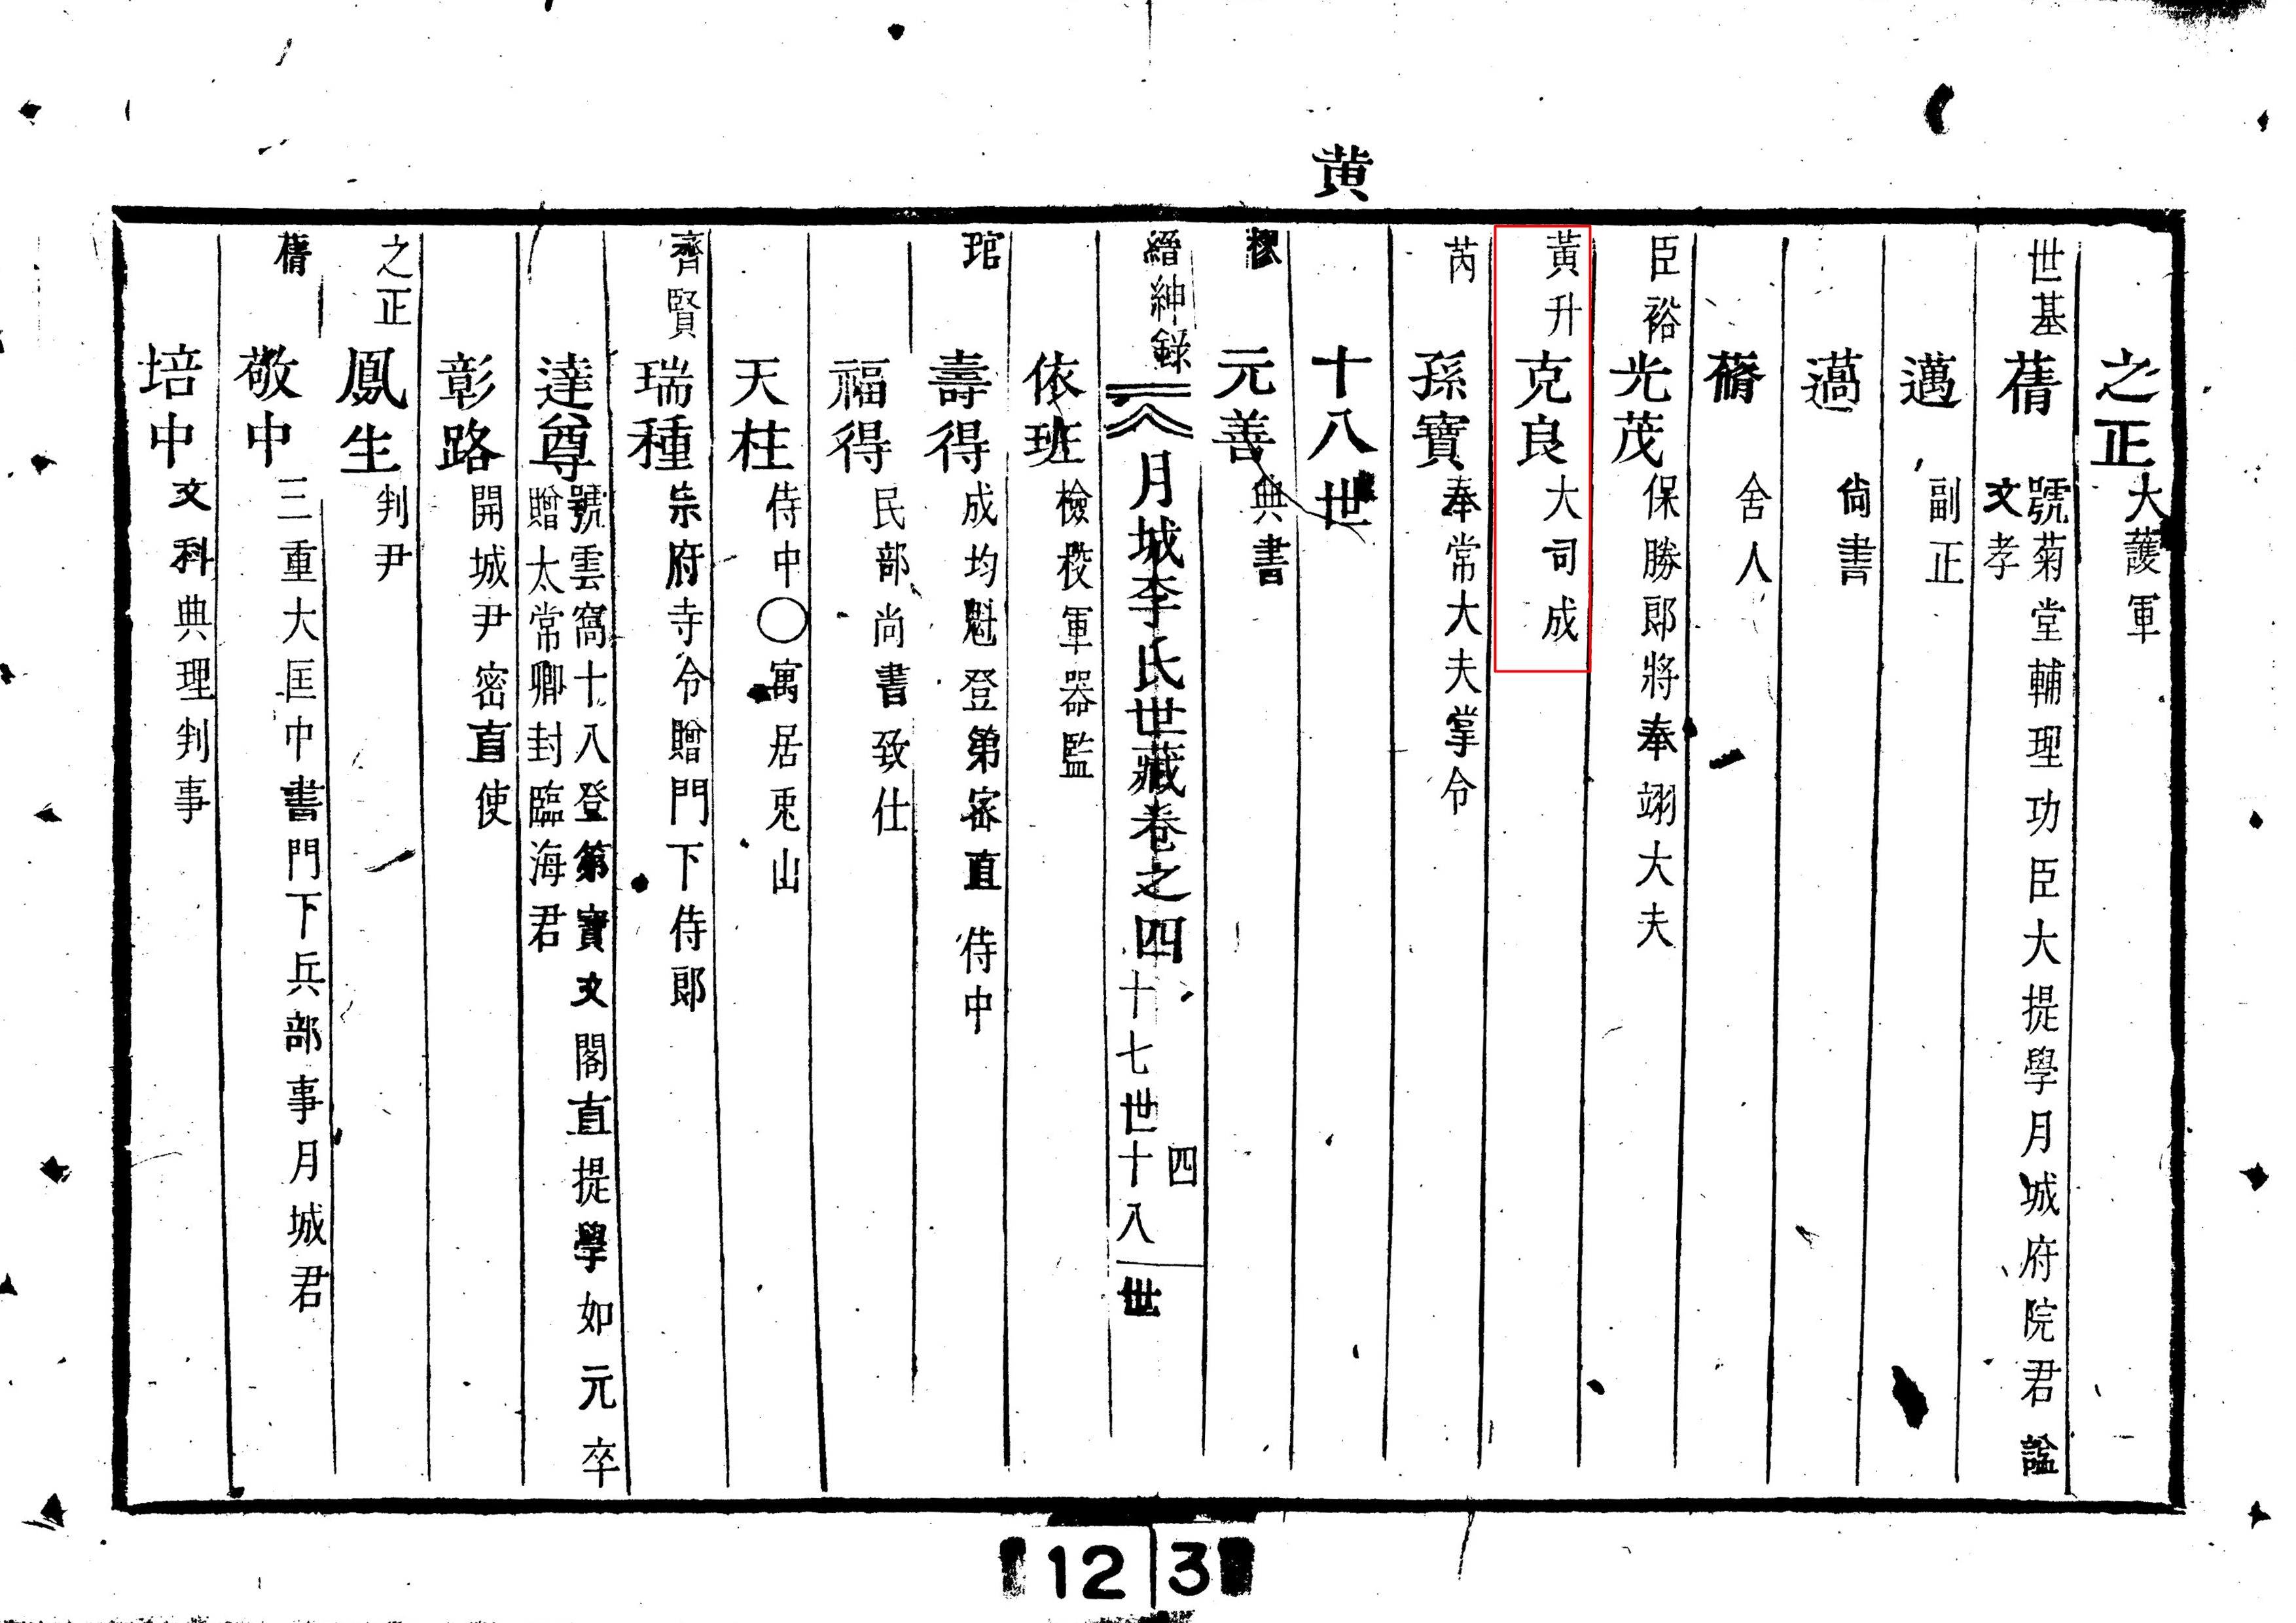 黄
之正 大護軍
世基 蒨 號菊堂輔理功臣大提學月城府院君諡
文孝
邁 副正
薖 尙書
蓨 舍人
臣裕 光茂 保勝郞將奉翊大夫
黃升 克良 大司成
芮 孫寶 奉常大夫掌令
十八世
樛 元善 典書
縉紳錄 月城李氏世藏卷之四 十七世十八世 四
依班 檢校軍器監
琯 壽得 成均魁登第密直侍中
福得 民部尚書致仕
天柱 侍中〇寓居兎山
齊賢 瑞種 宗府寺令贈門下侍郞
達尊 號雲窩十八登第寶文閣直提學如元卒
贈太常卿封臨海君
彰路 開城尹密直使
之正 鳳生 判尹
蒨 敬中 三重大匡中書門下兵部事月城君
培中 文科典理判事
12 3